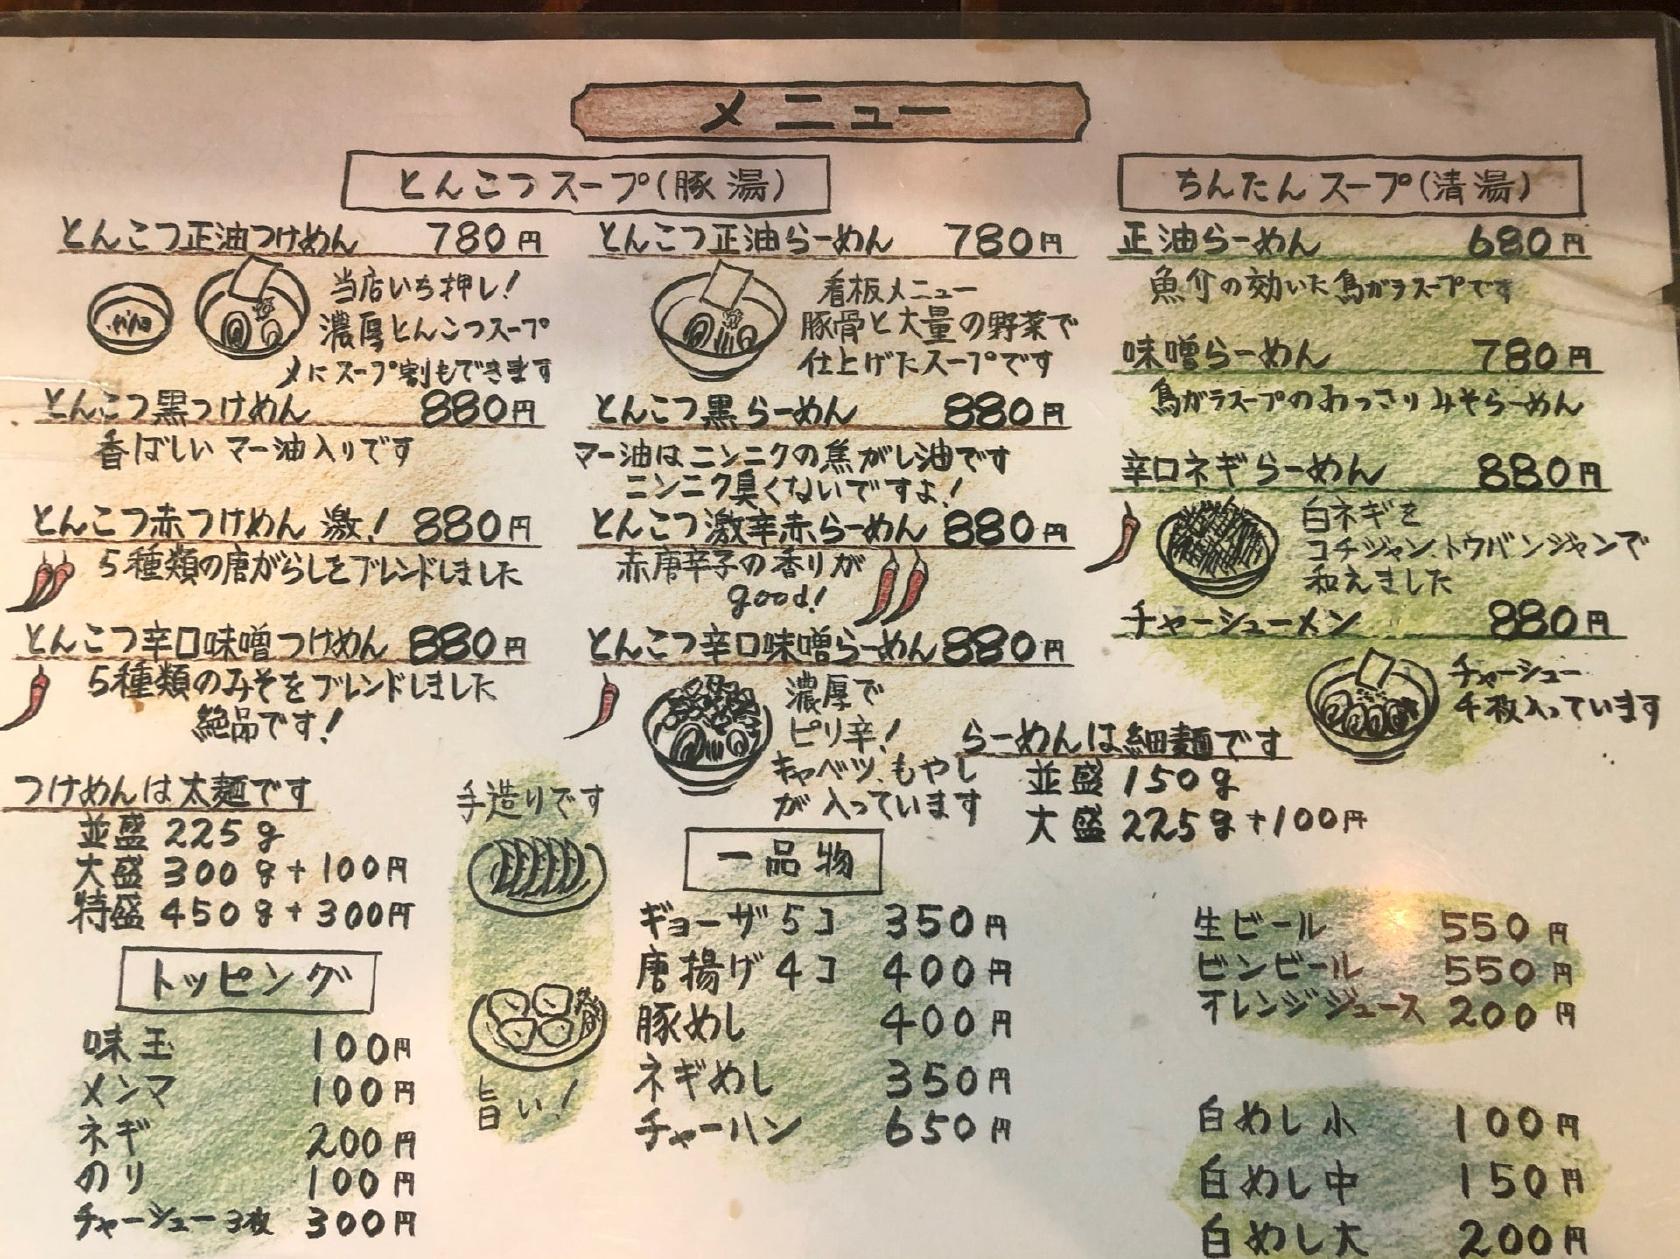 メニュー
とんこつスープ(豚湯)
とんこつ正油つけめん 780円
当店いち押し!
濃厚とんこつスープ
〆にスープ割もできます
とんこつ黒つけめん 880円
香ばしいマー油入りです
とんこつ赤つけめん 激! 880円
5種類の唐がらしをブレンドしました
とんこつ辛口味噌つけめん 880円
5種類のみそをブレンドしました
絶品です!
つけめんは太麺です
並盛 225g
大盛 300g+100円
特盛 450g+300円
とんこつ正油らーめん 780円
看板メニュー
豚骨と大量の野菜で
仕上げたスープです
とんこつ黒らーめん 880円
マー油はニンニクの焦がし油です
ニンニク臭くないですよ!
とんこつ激辛赤らーめん 880円
赤唐辛子の香りが
good!
とんこつ辛口味噌らーめん 880円
濃厚で
ピリ辛!
キャベツ、もやし
が入っています
ちんたんスープ(清湯)
正油らーめん 680円
魚介の効いた鳥がラスープです
味噌らーめん 780円
鳥がラスープのあっさりみそらーめん
辛口ネギらーめん 880円
白ネギを
コチジャン、トウバンジャンで
和えました
チャーシューメン 880円
チャーシュー
4枚入っています
らーめんは細麺です
並盛 150g
大盛 225g+100円
トッピング
味玉 100円
メンマ 100円
ネギ 200円
のり 100円
チャーシュー3枚 300円
手造りです
旨い!
一品物
ギョーザ5コ 350円
唐揚げ4コ 400円
豚めし 400円
ネギめし 350円
チャーハン 650円
生ビール 550円
ビンビール 550円
オレンジジュース 200円
白めし小 100円
白めし中 150円
白めし大 200円